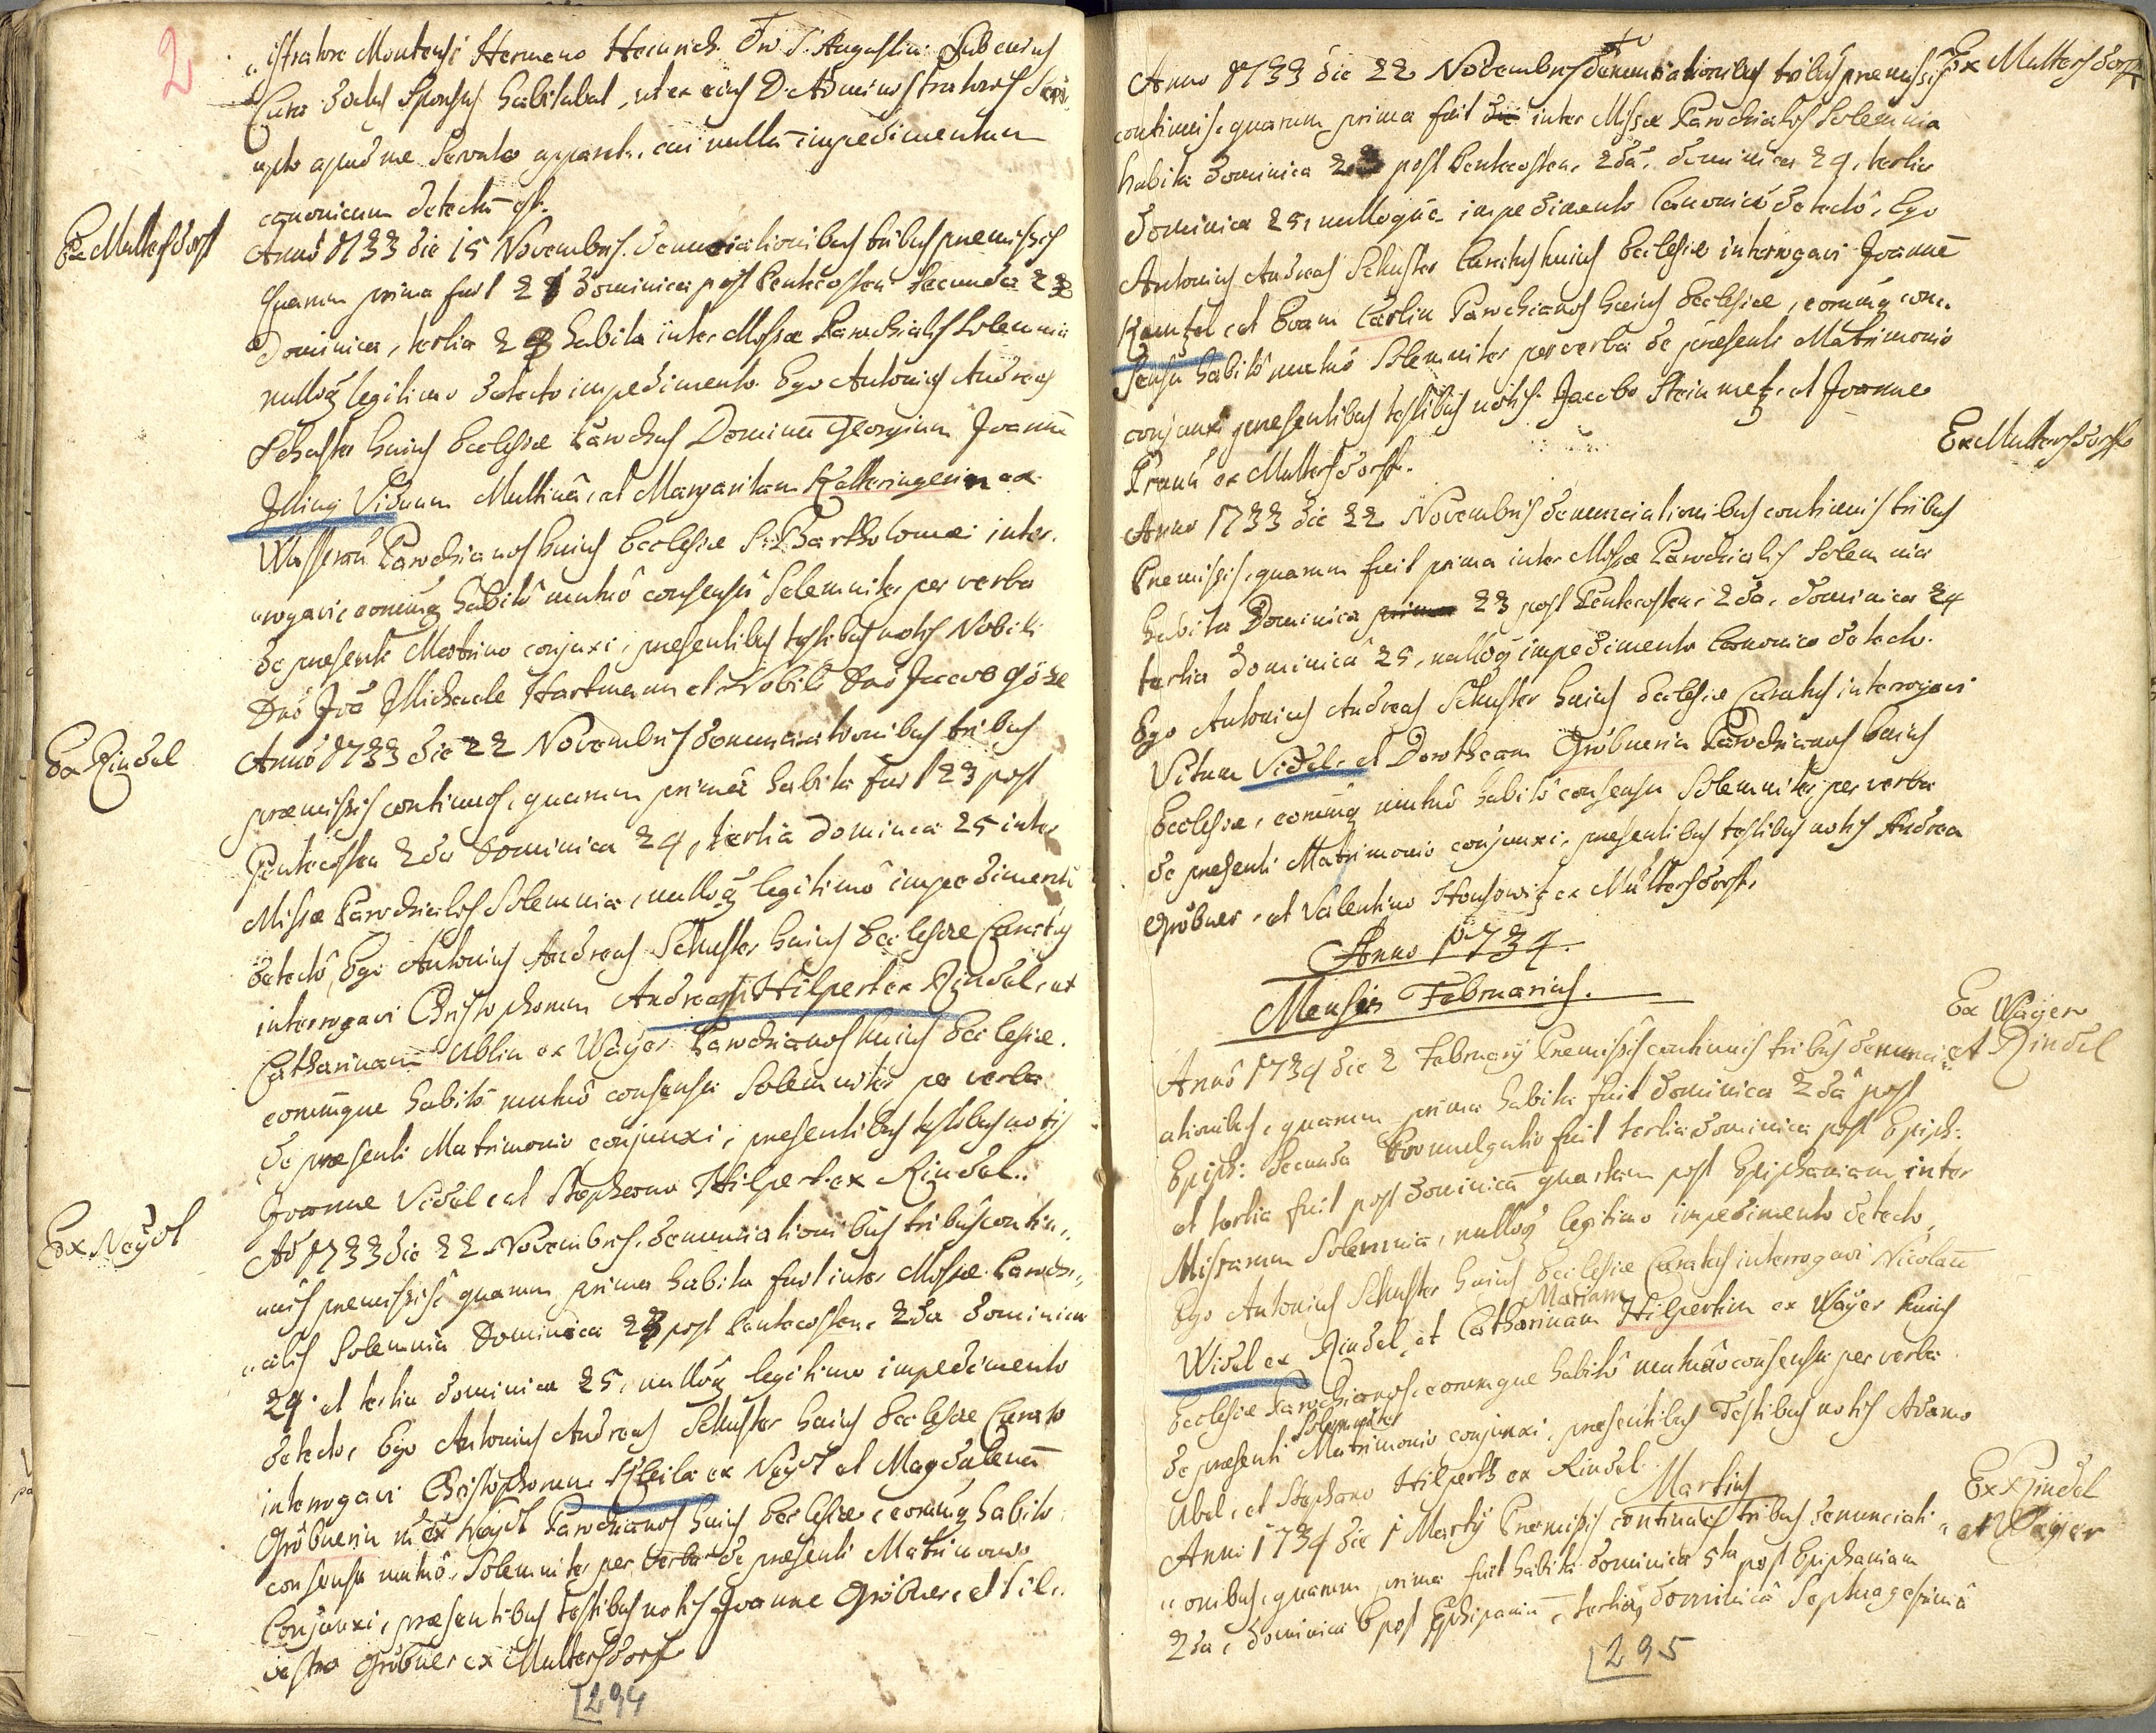 2
"istratore Montensi Hermano Heinrich Ord. S. Augustin: sub cujus
Cura dictus Sponsus habitabat, ut ex ejus D. Administratoris
apto apud me servato apparet, cui nullū impedimentum
canonicum detectū est.
Ex Multersdorff
Annô 1733 die 15 Novembris denunciationibus tribus premissis
quarum prima fuit 21 Dominica post Pentecosten secunda 22
Dominica, tertia 23 habita inter Missæ Parochialis solemnia
nulloq legitimo detecto impedimento Ego Antonius Andreas
Schuster hujus Ecclesiæ Parochus Dominū Georgium Joannē
Illing Viduum Multinā, et Margaritam Katteringerin ex
Wasserau Parochianos hujus Ecclesiæ S: Bartholomæi inter-
"rogavi, eorumq habitô mutuô consensu Solemniter per verba
de presenti Matrimo conjuxi, presentibus testibus notis Nobili
Dnô Joā Michaele Hartmann et Nobili Dnô Jacobo Göze
Ex Rindel
Annô 1733 die 22 Novembris denunciationibus tribus
præmissis continuos, quarum primā habita fuit 23 post
Pentecosten 2da Dominica 24, tertia Dominica 25 inter
Missæ Parochialis Solemnia, nulloq legitimô impedimentô
detectô, Ego Antonius Andreas Schuster hujus Ecclesiæ Curatus
interrogavi Christophorum Andreas Hilpert ex Rindel, et
Catharinam Ublin ex Wayer Parochianos hujus Ecclesiæ.
eorumque habitô mutuô consensu solemniter per verba
de præsenti Matrimonio conjunxi, presentibus testibus notis
Joanne Videl et Stephano Hilpert ex Rindel.
Ex Neÿdt
Aô 1733 die 22 Novembris denunciationibus tribus contin„
nuis premissis quarum prima habita fuit inter Missæ Paroch„
"ialis Solemnia Dominica 23 post Pentecosten, 2da Dominica
24. et tertia dominica 25, nulloq legitimo impedimento
detecto, Ego Antonius Andreas Schuster hujus Ecclesiæ Curato
interrogavi Christophorum Steila ex Neydt et Magdalenā
Gröbnerin ex Neÿdt Parochianos hujus Ecclesiæ, eorumq habito
consensu mutuô, Solemniter per verba de præsenti Matrimonio
Conjunxi, præsentibus testibus notis Joanne Gröbner, et Sil„
vestro Gröbner ex Multersdorff
294
Ex Multersdorff
Anno 1733 die 22 Novembris denunciationibus tribus premissis
continuis, quarum prima fuit die inter Missæ Parochialis Solemnia
habita dominica 23 post Pentecosten, 2dâ, dominica 24, tertia
dominica 25, nulloque impedimento Canonicô detectô, Ego
Antonius Andreas Schuster Curatus hujus Ecclesiæ interrogavi Joannē
Kamtzel et Evam Carlin Parochianos hujus Ecclesiæ, eorumq con-
sensu habitô mutuô Solemniter per verba de presenti Matrimonio
conjunxi presentibus testibus notis. Jacobo Steinmetz, et Joanne
Praun ex Multersdorff.
Ex Multersdorff
Anno 1733 die 22 Novembris denunciationibus continuis tribus
Premissis, quarum fuit prima inter Missæ Parochialis Solemnia
habita Dominica prima 23 post Pentecosten, 2da, dominica 24
tertia dominicâ 25, nulloq impedimento Canonico detecto.
Ego Antonius Andreas Schuster hujus Ecclesiæ Curatus interrogavi
Vitum Videl. et Dorotheam Gröbnerin Parochianos hujus
Ecclesiæ, eorumq mutuô habitô consensu Solemniter per verba
de presenti Matrimonio conjunxi, presentibus testibus notis Andrea
Gröbner, et Valentino Honsowitz ex Multersdorff.
Anno 1734.
Mensis Februarius.
Ex Wayer
et Rindel
Annô 1734 die 2 Februarÿ Premissis continuis tribus denunci=
ationibus, quarum prima habita fuit Dominica 2dâ post
Epiph: Secunda Promulgatio fuit tertia dominica post Epiph:
et tertia fuit post dominicā quartam post Epiphaniam inter
Missarum Solemnia, nulloq legitimo impedimento detecto,
Ego Antonius Schuster hujus Ecclesiæ Curatus interrogavi Nicolaū
Mariam
Widel ex Rindel, et Catharinam Hilpertin ex Wayer hujus
Ecclesiæ Parochianos, eorumque habitô mutuô consensu per verba
Solemniter
de presenti Matrimonio conjunxi, præsentibus Testibus notis Adamo
Ubel, et Stephano Hilpert ex Rindel.
Martius
Ex Rindel
et Wayer
Anni 1734 die 1 Martÿ Premissis continuis tribus denunciati
"onibus, quarum prima fuit habita dominica 5ta post Epiphaniam
2da, dominica 6 post Ephipaniā, tertiaq dominicâ Septuagesimâ
295